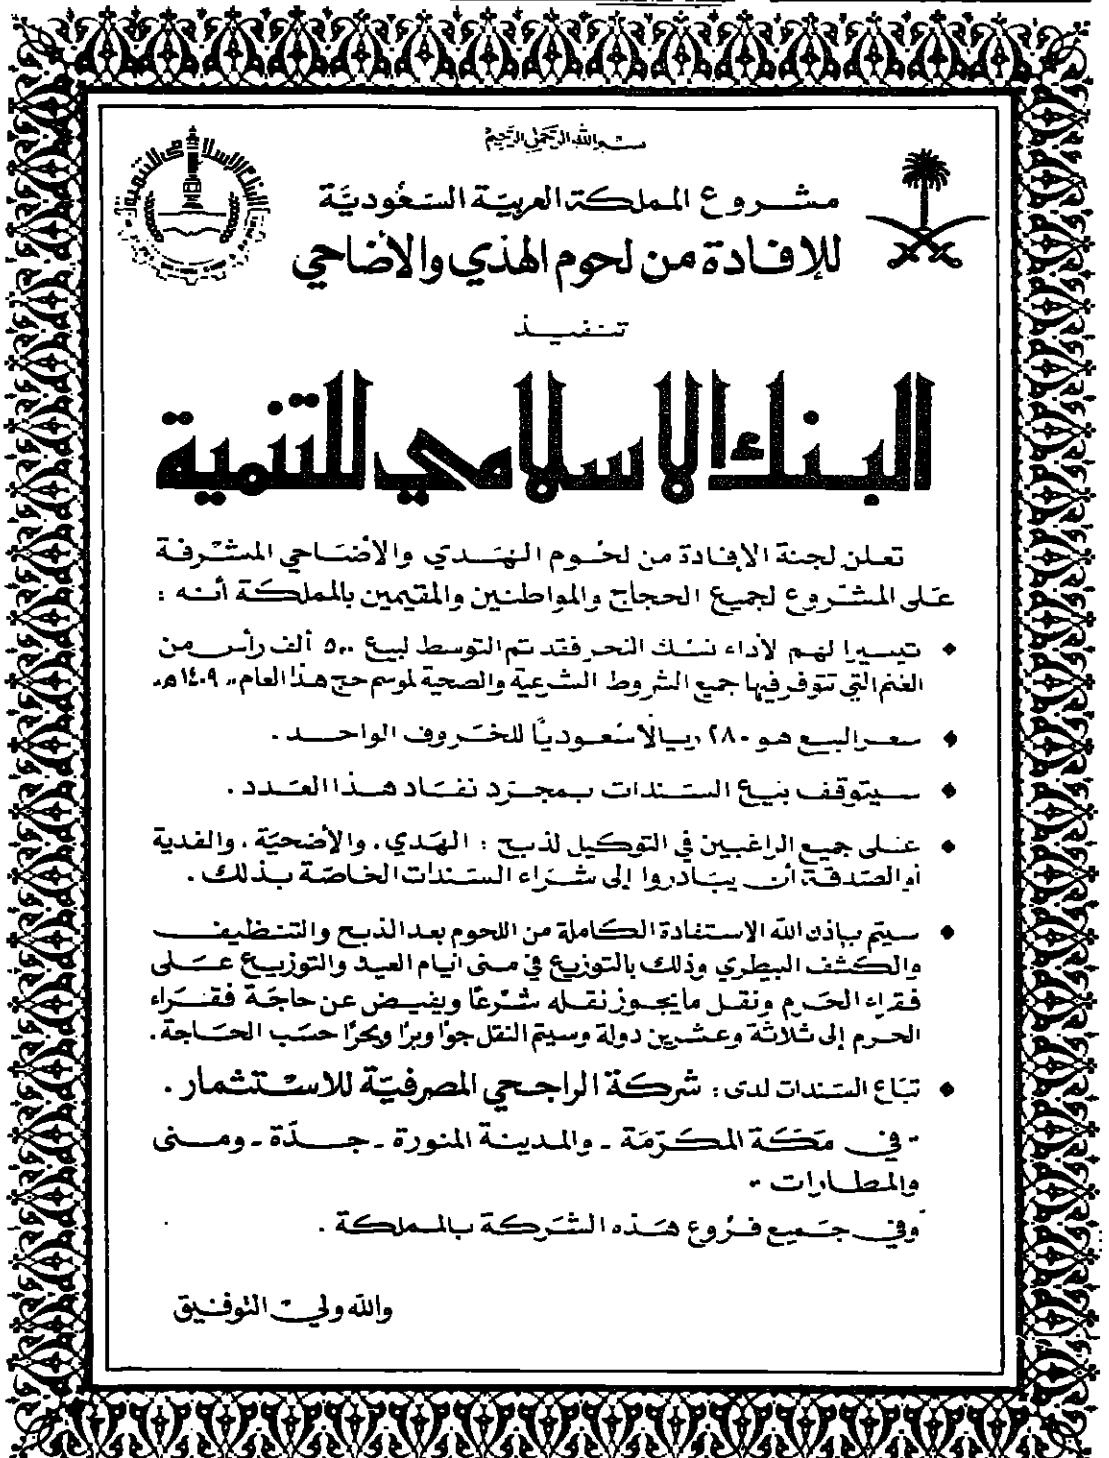 بسم الله الرحمن الرحيم
مشروع المملكة العربية السعودية
للإفادة من لحوم الهدي والأضاحي
تنفيذ
البنك الاسلامي للتنمية
تعلن لجنة الإفادة من لحوم الهدي والأضاحي المشرفة
على المشروع لجميع الحجاج والمواطنين والمقيمين بالمملكة أنه :
♦ تيسيرا لهم لأداء نسك النحر فقد تم التوسط لبيع ٥٠٠ ألف رأس من
الغنم التي تتوفر فيها جميع الشروط الشرعية والصحية لموسم حج هذا العام ١٤٠٩هـ
♦ سعر البيع هو ٢٨٠ ريالا سعوديًا للخروف الواحد .
♦ سيتوقف بيع السندات بمجرد نفاد هذا العدد .
♦ على جميع الراغبين في التوكيل لذبح : الهدي . والأضحية . والفدية
أو الصدقة أن يبادروا إلى شراء السندات الخاصة بذلك .
♦ سيتم بإذن الله الاستفادة الكاملة من اللحوم بعد الذبح والتنظيف
والكشف البيطري وذلك بالتوزيع في منى أيام العيد والتوزيع على
فقراء الحرم ونقل ما يجوز نقله شرعًا ويفيض عن حاجة فقراء
الحرم إلى ثلاثة وعشرين دولة وسيتم النقل جوًا وبرًا وبحرًا حسب الحاجة .
♦ تباع السندات لدى : شركة الراجحي المصرفية للاستثمار .
- في مكة المكرمة - والمدينة المنورة - جدة - ومنى
والمطارات -
وفي جميع فروع هذه الشركة بالمملكة .
والله ولي التوفيق